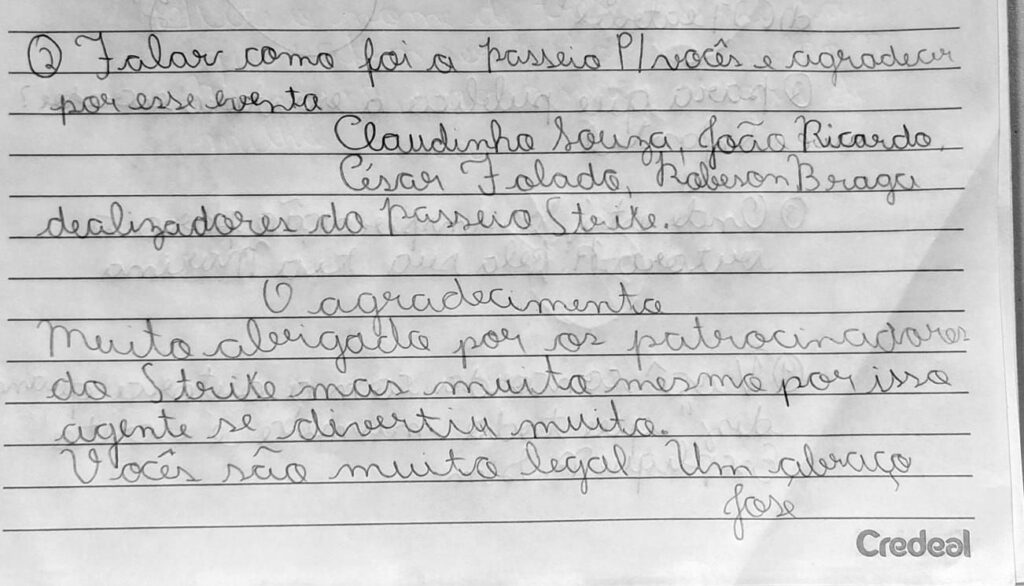 ② Falar como foi o passeio P/ vocês e agradecer
por esse evento
Claudinho Souza, João Ricardo,
César Folado, Robeson Braga
dealizadores do passeio Strike.
O agradecimento
Muito obrigado por os patrocinadores
do Strike mas muito mesmo por isso
agente se divertiu muito.
Vocês são muito legal Um abraço
Jose
Credeal